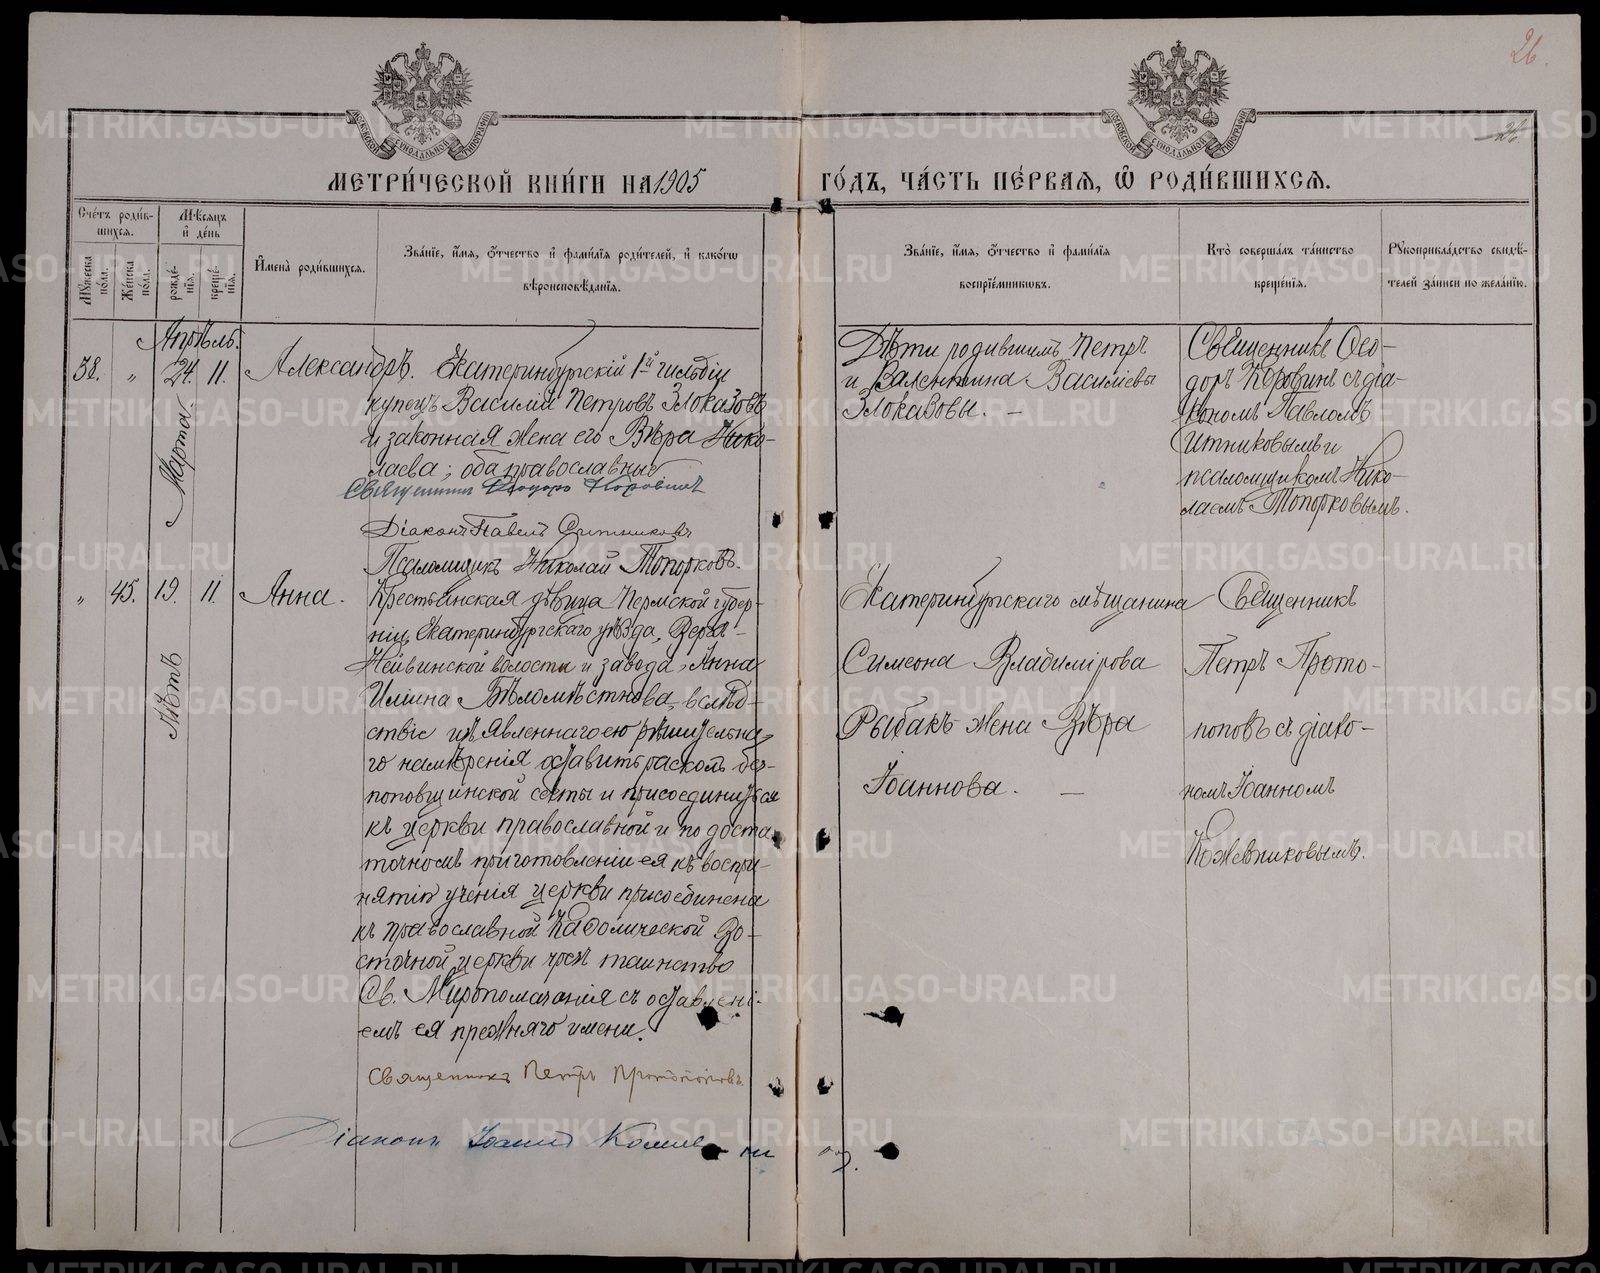 26.
26.
МЕТРИ́ЧЕСКОЙ КНИ́ГИ НА 1905 ГО́ДЪ, ЧА́СТЬ ПЕ́РВАЯ, Ѡ РОДИ́ВШИХСЯ.
МОСКОВСКОЙ СУНОДАЛЬНОЙ ТИПОГРАФІИ
МОСКОВСКОЙ СУНОДАЛЬНОЙ ТИПОГРАФІИ
Сче́тъ роди́в-
шихся.
Мѣ́сяцъ
и҆ де́нь
Мꙋ́жеска
по́ла.
Же́нска
по́ла.
рожде́-
нїя.
креще́-
нїя.
И҆мена̀ роди́вшихся.
Зва́нїе, и҆́мя, ѻ҆́тчество и҆ фами́лїя роди́телей, и҆ како́гѡ
вѣроисповѣ́данїя.
Зва́нїе, и҆́мя, ѻ҆́тчество и҆ фами́лїя
воспрїе́мникѡвъ.
Кто̀ соверша́лъ та́инство
креще́нїя.
Рꙋкоприкла́дство свидѣ́-
телей за́писи по жела́нїю.
Апрѣль.
38.
"
24.
11.
Марта.
Александръ.
Екатеринбургскій 1-й гильдіи
купецъ Василій Петровъ Злоказовъ
и законная жена его Вѣра Нико-
лаева; оба православные
Священникъ Ѳеодоръ Коровинъ
Діаконъ Павелъ Ситниковъ
Псаломщикъ Николай Топорковъ.
Дѣти родившимъ Петръ
и Валентина Василіевы
Злоказовы. —
Священникъ Ѳео-
доръ Коровинъ съ діа-
кономъ Павломъ
Ситниковымъ и
псаломщикомъ Нико-
лаемъ Топорковымъ.
"
45.
19.
11.
лѣтъ
Анна.
Крестьянская дѣвица Пермской губер-
ніи, Екатеринбургскаго уѣзда, Верхъ-
Нейвинской волости и завода, Анна
Ильина Бѣломѣстнова, вслѣд-
ствіе изъявленнаго ею рѣшительна-
го намѣренія оставить расколъ без-
поповщинской секты и присоединиться
къ церкви православной и по доста-
точномъ приготовленіи ея къ воспри-
нятію ученія церкви присоединена
къ православной Каѳолической Во-
сточной церкви чрезъ таинство
Св. Миропомазанія съ оставлені-
емъ ея прежняго имени.
Священникъ Петръ Протопоповъ.
Діаконъ Іоаннъ Кожевниковъ.
Екатеринбургскаго мѣщанина
Симеона Владимірова
Рыбакъ жена Вѣра
Іоаннова. —
Священникъ
Петръ Прото-
поповъ съ діако-
номъ Іоанномъ
Кожевниковымъ.
METRIKI.GASO-URAL.RU